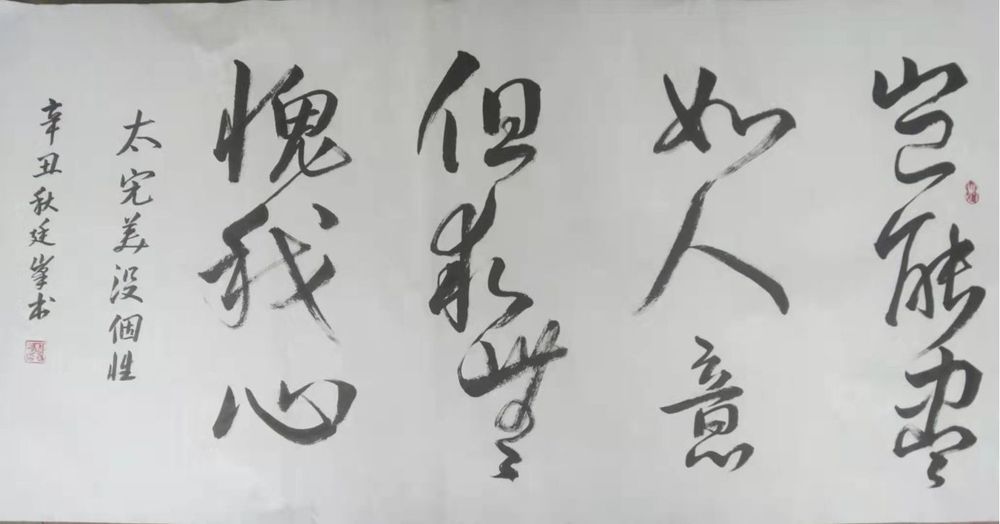 岂能尽
如人意
但求無
愧我心
太完美没個性
辛丑秋廷峯书